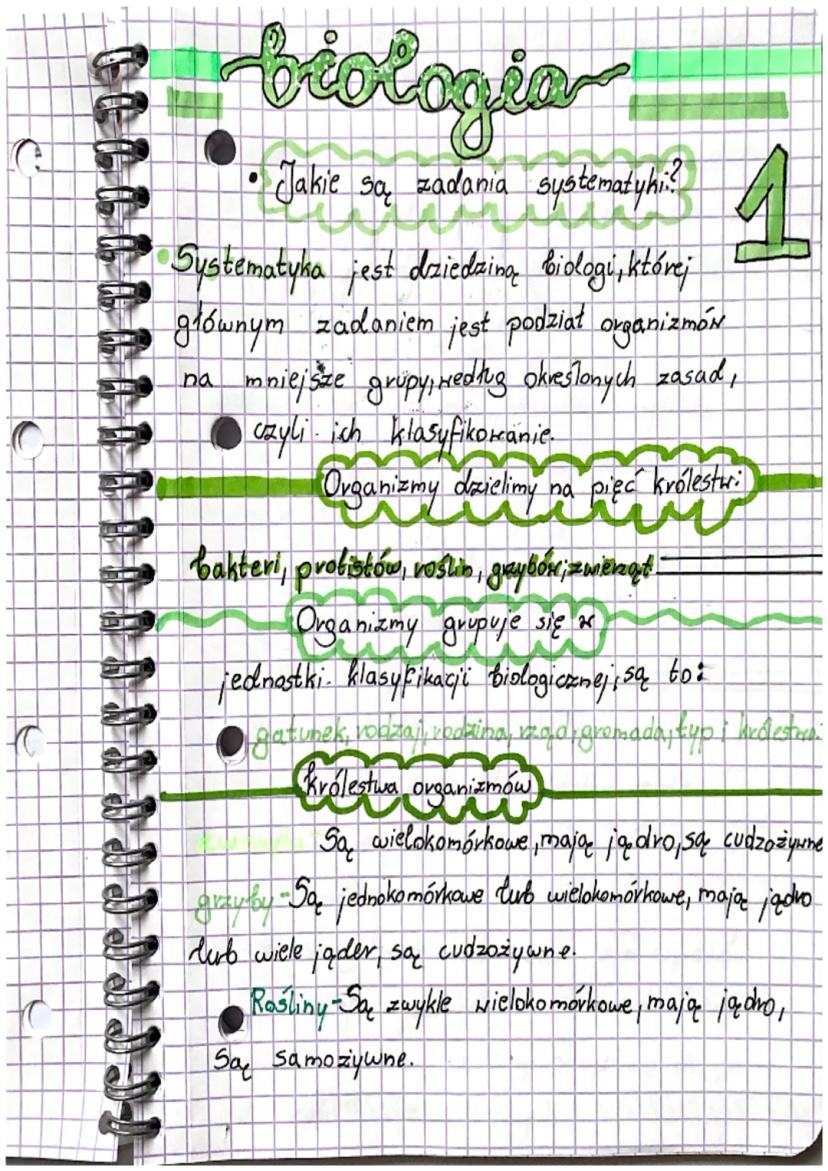 biologia
1
• Jakie są zadania systematyki?
• Systematyka jest dziedziną biologi, której
głównym zadaniem jest podział organizmów
na mniejsze grupy, według określonych zasad,
czyli ich klasyfikowanie.
Organizmy dzielimy na pięć królestw:
bakteri, protistów, roślin, grzybów, zwierząt
Organizmy grupuje się w
jednostki klasyfikacji biologicznej, są to:
gatunek, rodzaj, rodzina, rząd, gromada, typ i królestwo.
królestwa organizmów
zwierzęta - Są wielokomórkowe, mają jądro, są cudzożywne
grzyby - Są jednokomórkowe lub wielokomórkowe, mają jądro
lub wiele jąder, są cudzożywne.
Rośliny - Są zwykle wielokomórkowe, mają jądro,
są samożywne.